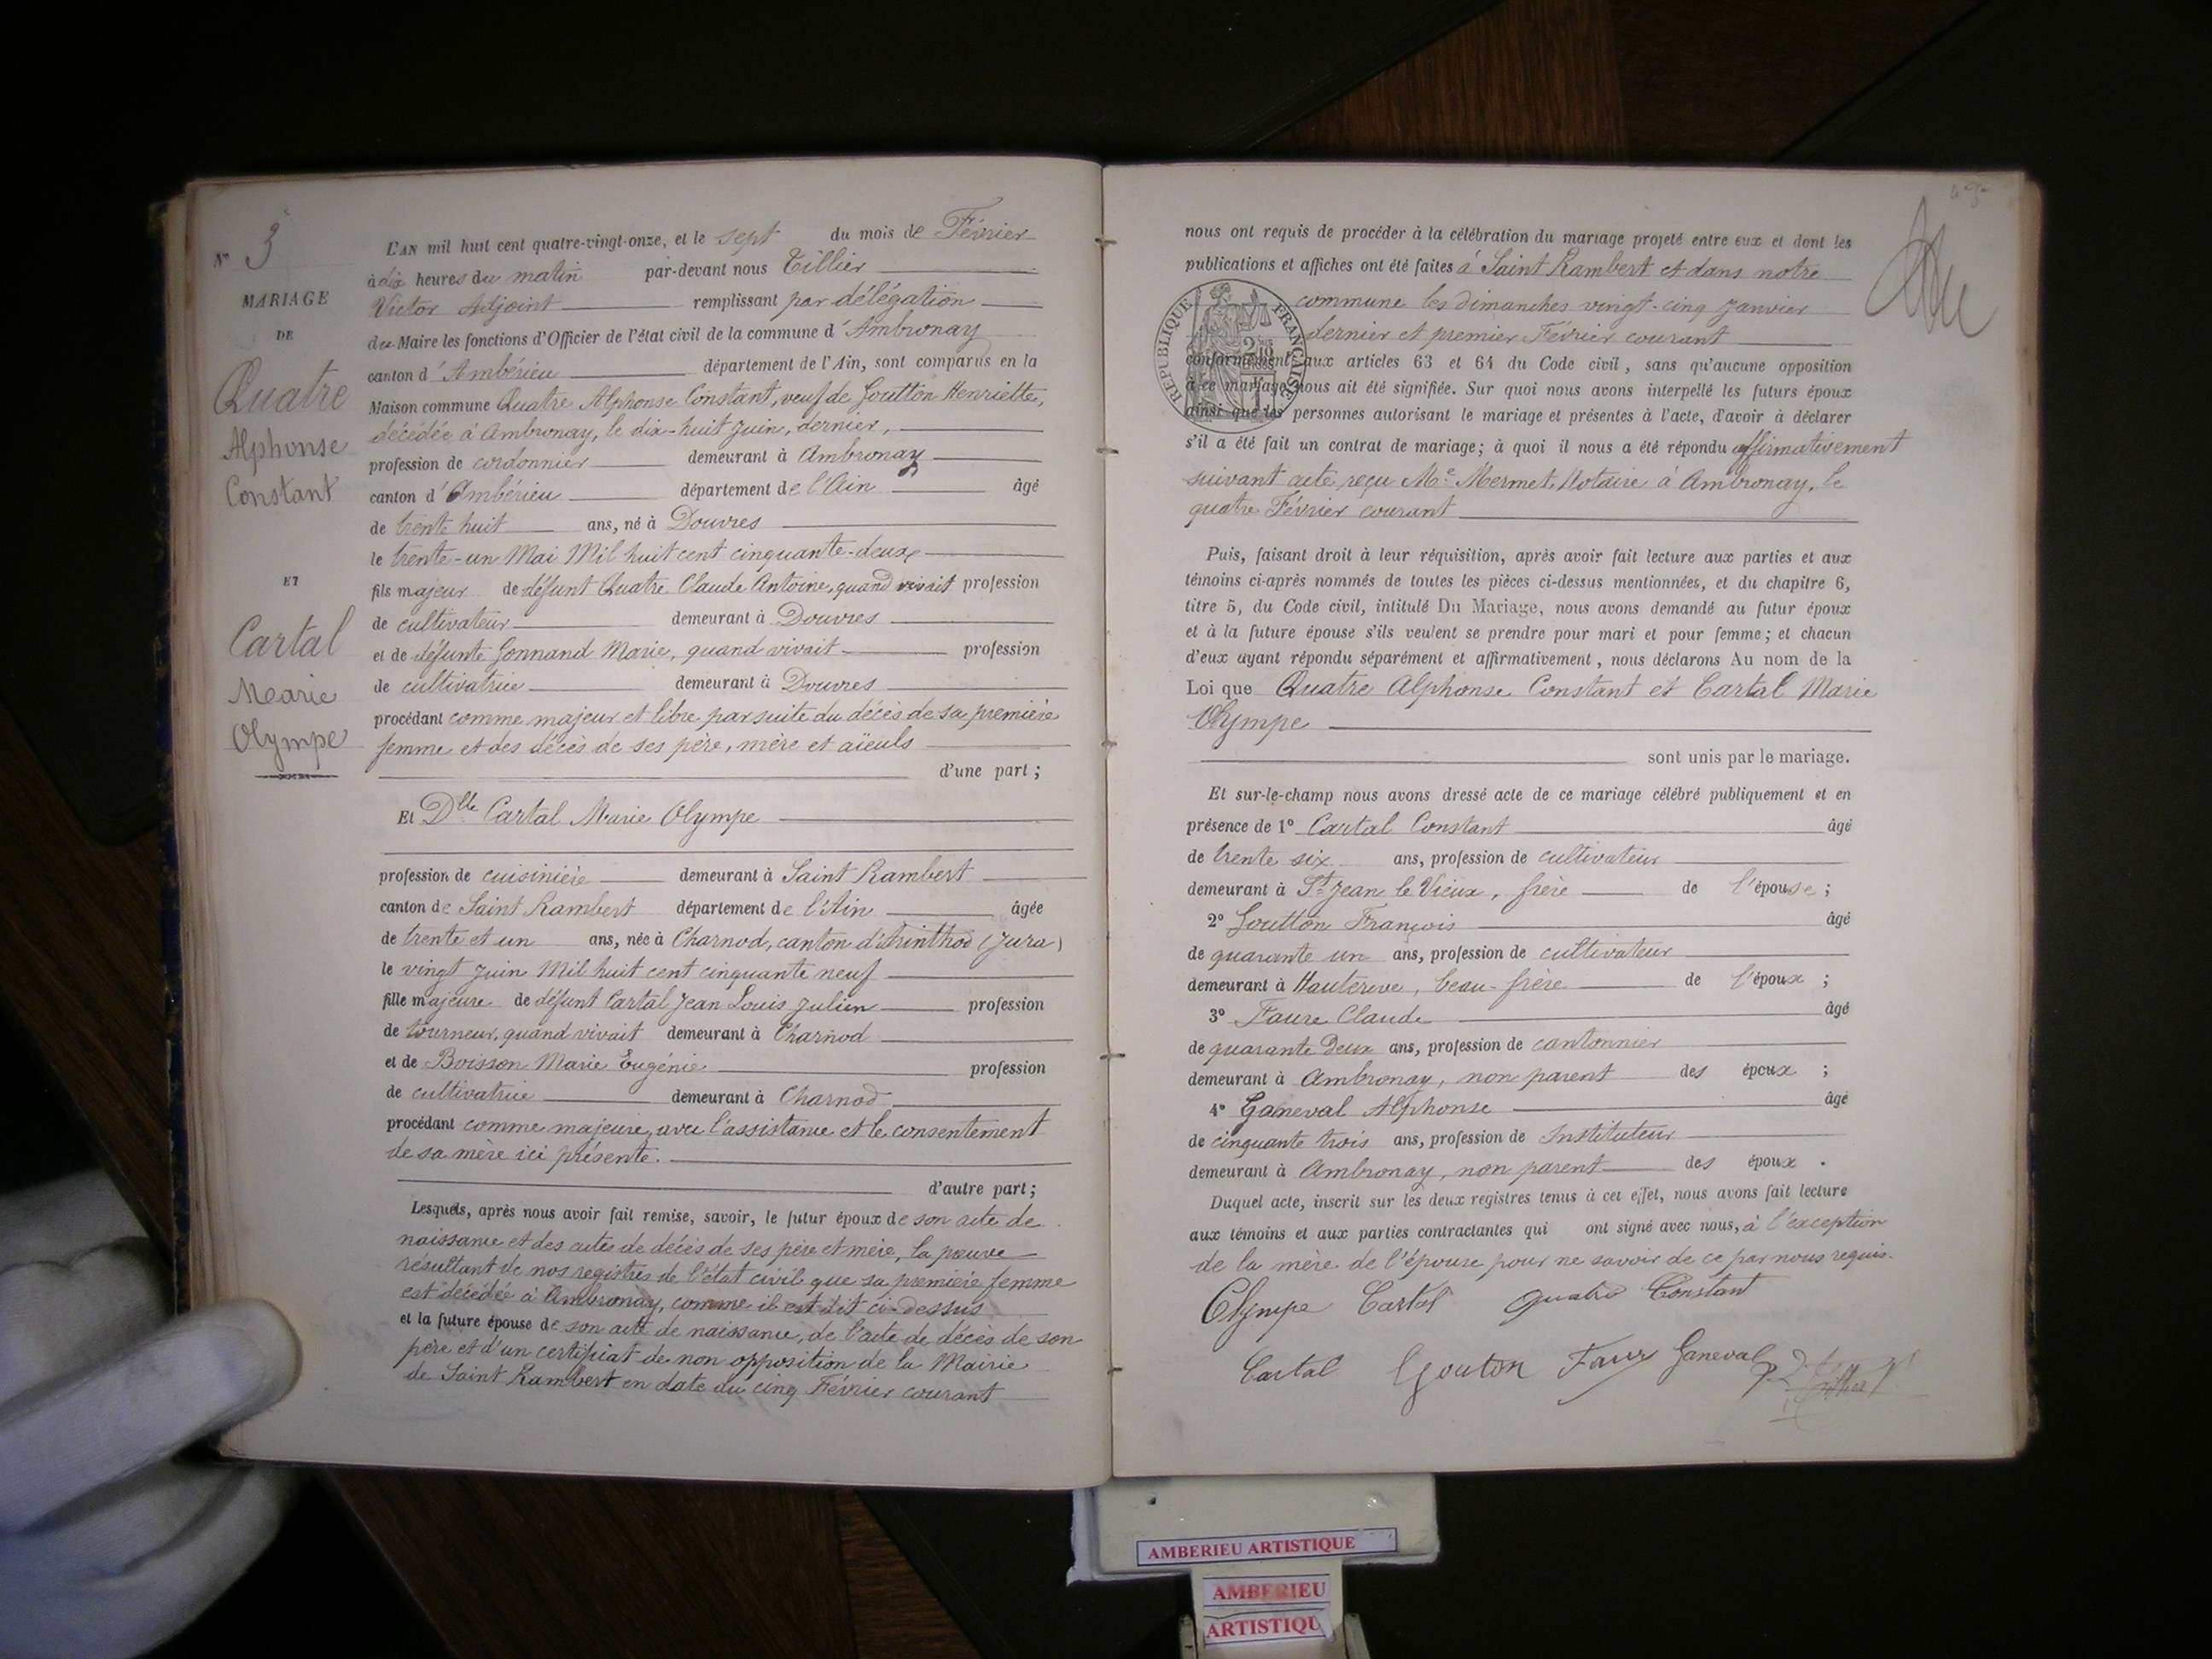 N° 3
MARIAGE
DE
Quatre
Alphonse
Constant
ET
Cartal
Marie
Olympe
L'AN mil huit cent quatre-vingt-onze, et le sept du mois de Février
à dix heures du matin par-devant nous Tillier
Victor Adjoint remplissant par délégation
du Maire les fonctions d'Officier de l'état civil de la commune d'Ambronay
canton d'Ambérieu département de l'Ain, sont comparus en la
Maison commune Quatre Alphonse Constant, veuf de Goutton Henriette,
décédée à Ambronay, le dix-huit Juin, dernier,
profession de cordonnier demeurant à Ambronay
canton d'Ambérieu département de l'Ain âgé
de trente huit ans, né à Douvres
le trente-un Mai Mil huit cent cinquante-deux
fils majeur de défunt Quatre Claude Antoine, quand vivait profession
de cultivateur demeurant à Douvres
et de défunte Gonnand Marie, quand vivait profession
de cultivatrice demeurant à Douvres
procédant comme majeur et libre par suite du décès de sa première
femme et des décès de ses père, mère et aïeuls
d'une part ;
Et Dlle Cartal Marie Olympe
profession de cuisinière demeurant à Saint Rambert
canton de Saint Rambert département de l'Ain âgée
de trente et un ans, née à Charnod, canton d'Arinthod (Jura)
le vingt Juin Mil huit cent cinquante neuf
fille majeure de défunt Cartal Jean Louis Julien profession
de tourneur, quand vivait demeurant à Charnod
et de Boisson Marie Eugénie profession
de cultivatrice demeurant à Charnod
procédant comme majeure, avec l'assistance et le consentement
de sa mère ici présente.
d'autre part ;
Lesquels, après nous avoir fait remise, savoir, le futur époux de son acte de
naissance et des actes de décès de ses père et mère, la preuve
résultant de nos registres de l'état civil que sa première femme
est décédée à Ambronay, comme il est dit ci-dessus
et la future épouse de son acte de naissance, de l'acte de décès de son
père et d'un certificat de non opposition de la Mairie
de Saint Rambert en date du cinq Février courant
nous ont requis de procéder à la célébration du mariage projeté entre eux et dont les
publications et affiches ont été faites à Saint Rambert et dans notre
commune les dimanches vingt-cinq Janvier
dernier et premier Février courant
conformément aux articles 63 et 64 du Code civil, sans qu'aucune opposition
à ce mariage nous ait été signifiée. Sur quoi nous avons interpellé les futurs époux
ainsi que les personnes autorisant le mariage et présentes à l'acte, d'avoir à déclarer
s'il a été fait un contrat de mariage ; à quoi il nous a été répondu affirmativement
suivant acte reçu Me Mermet, Notaire à Ambronay, le
quatre Février courant
RÉPUBLIQUE FRANÇAISE
Puis, faisant droit à leur réquisition, après avoir fait lecture aux parties et aux
témoins ci-après nommés de toutes les pièces ci-dessus mentionnées, et du chapitre 6,
titre 5, du Code civil, intitulé Du Mariage, nous avons demandé au futur époux
et à la future épouse s'ils veulent se prendre pour mari et pour femme ; et chacun
d'eux ayant répondu séparément et affirmativement, nous déclarons Au nom de la
Loi que Quatre Alphonse Constant et Cartal Marie
Olympe
sont unis par le mariage.
Et sur-le-champ nous avons dressé acte de ce mariage célébré publiquement et en
présence de 1° Cartal Constant âgé
de trente six ans, profession de cultivateur
demeurant à St Jean le Vieux, frère de l'épouse ;
2° Goutton François âgé
de quarante un ans, profession de cultivateur
demeurant à Hauterive, beau-frère de l'époux ;
3° Faure Claude âgé
de quarante deux ans, profession de cantonnier
demeurant à Ambronay, non parent des époux ;
4° Ganeval Alphonse âgé
de cinquante trois ans, profession de Instituteur
demeurant à Ambronay, non parent des époux .
Duquel acte, inscrit sur les deux registres tenus à cet effet, nous avons fait lecture
aux témoins et aux parties contractantes qui ont signé avec nous, à l'exception
de la mère de l'épouse pour ne savoir de ce par nous requis.
Olympe Cartal Quatre Constant
Cartal Gouton Faure Ganeval
AMBERIEU ARTISTIQUE
AMBERIEU
ARTISTIQU